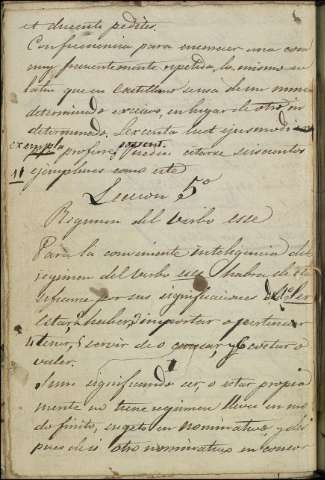 et ducente pedites.
Con frecuencia para enumerar una cosa
muy frecuentemente repetida, lo mismo en
latin que en castellano se usa de un nume
determinado excesivo, en lugar de otro in
determinado. Sexcenta licet ejusmodi
exempla proferre possent. Pueden citarse seiscientos
ejemplares como este
Leccion 5º
Regimen del verbo esse
Para la conveniente inteligencia del
regimen del verbo esse habra de
por sus significaciones de 1º Ser
estar, haber, importar o pertenecer
4 tener, 5 servir de o causar, y 6 costar o
valer.
Sum significando ser, o estar propia
mente no tiene regimen lleva en mo
do finito, sugeto en nominativo, y des
pues de si otro nominativo en concor